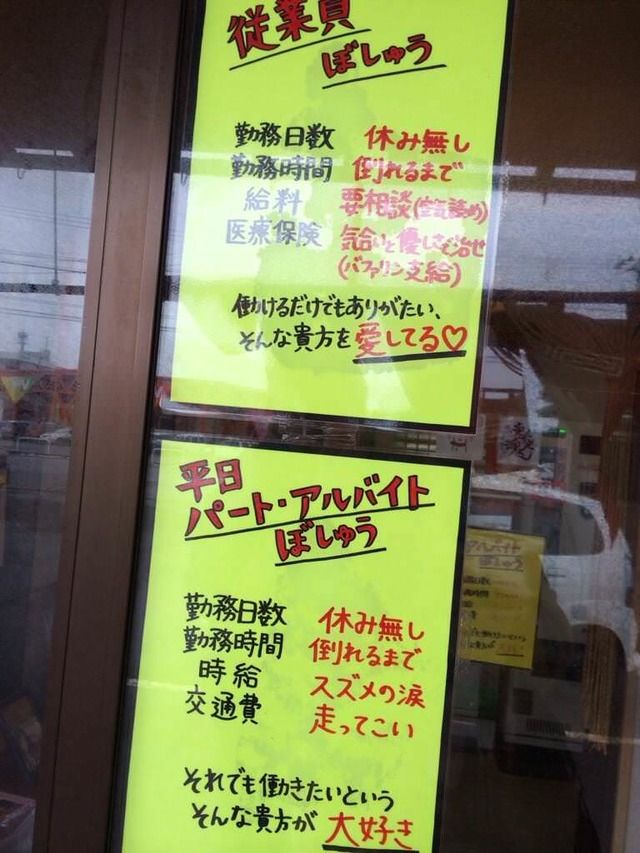 従業員
ぼしゅう
勤務日数 休み無し
勤務時間 倒れるまで
給料 要相談(空気読め)
医療保険 気合いと優しさで治せ
(バファリン支給)
働けるだけでもありがたい、
そんな貴方を愛してる♡
平日
パート・アルバイト
ぼしゅう
勤務日数 休み無し
勤務時間 倒れるまで
時給 スズメの涙
交通費 走ってこい
それでも働きたいという
そんな貴方が 大好き
アルバイト
ぼしゅう